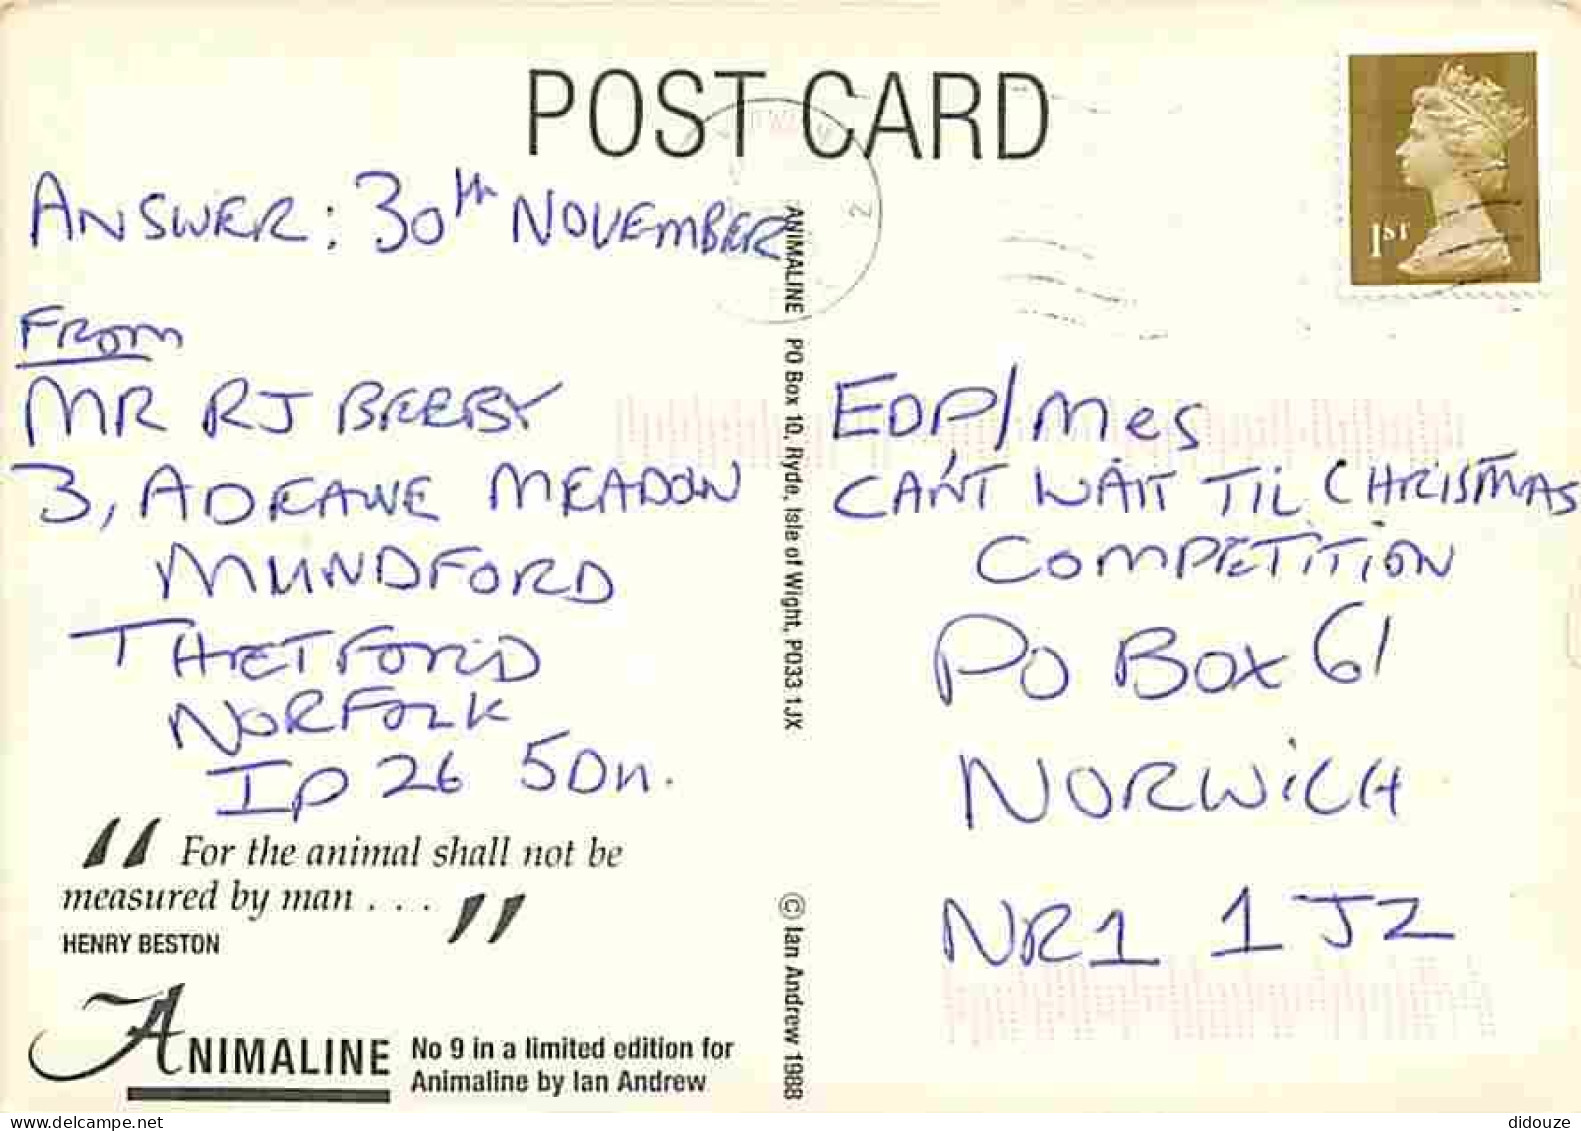 POST CARD
1ST
ANSWER: 30th NOVEMBER
From
MR RJ BEEBY
3, ADEANE MEADOW
MUNDFORD
THETFORD
NORFOLK
IP26 5DN.
"For the animal shall not be
measured by man . . ."
HENRY BESTON
ANIMALINE
No 9 in a limited edition for
Animaline by Ian Andrew
ANIMALINE PO Box 10, Ryde, Isle of Wight, PO33 1JX
© Ian Andrew 1988
EDP/Mes
CAN'T WAIT TIL CHRISTMAS
COMPETITION
PO BOX 61
NORWICH
NR1 1JZ
delcampe.net
didouze